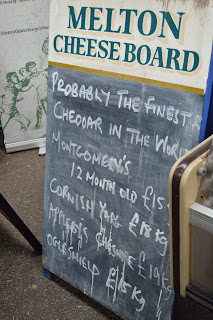 MELTON
CHEESEBOARD
PROBABLY THE FINEST
CHEDDAR IN THE WORLD
MONTGOMERY'S
12 MONTH OLD £15
CORNISH YARG £18 KG
APPLEBY'S CHESHIRE
OGLESHIELD £18 KG